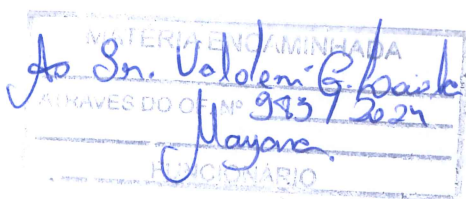 MATERIA ENCAMINHADA
Ao Sr. Valdemi G.
ATRAVES DO OF. Nº 983 / 2024
Mayara
FUNCIONÁRIO